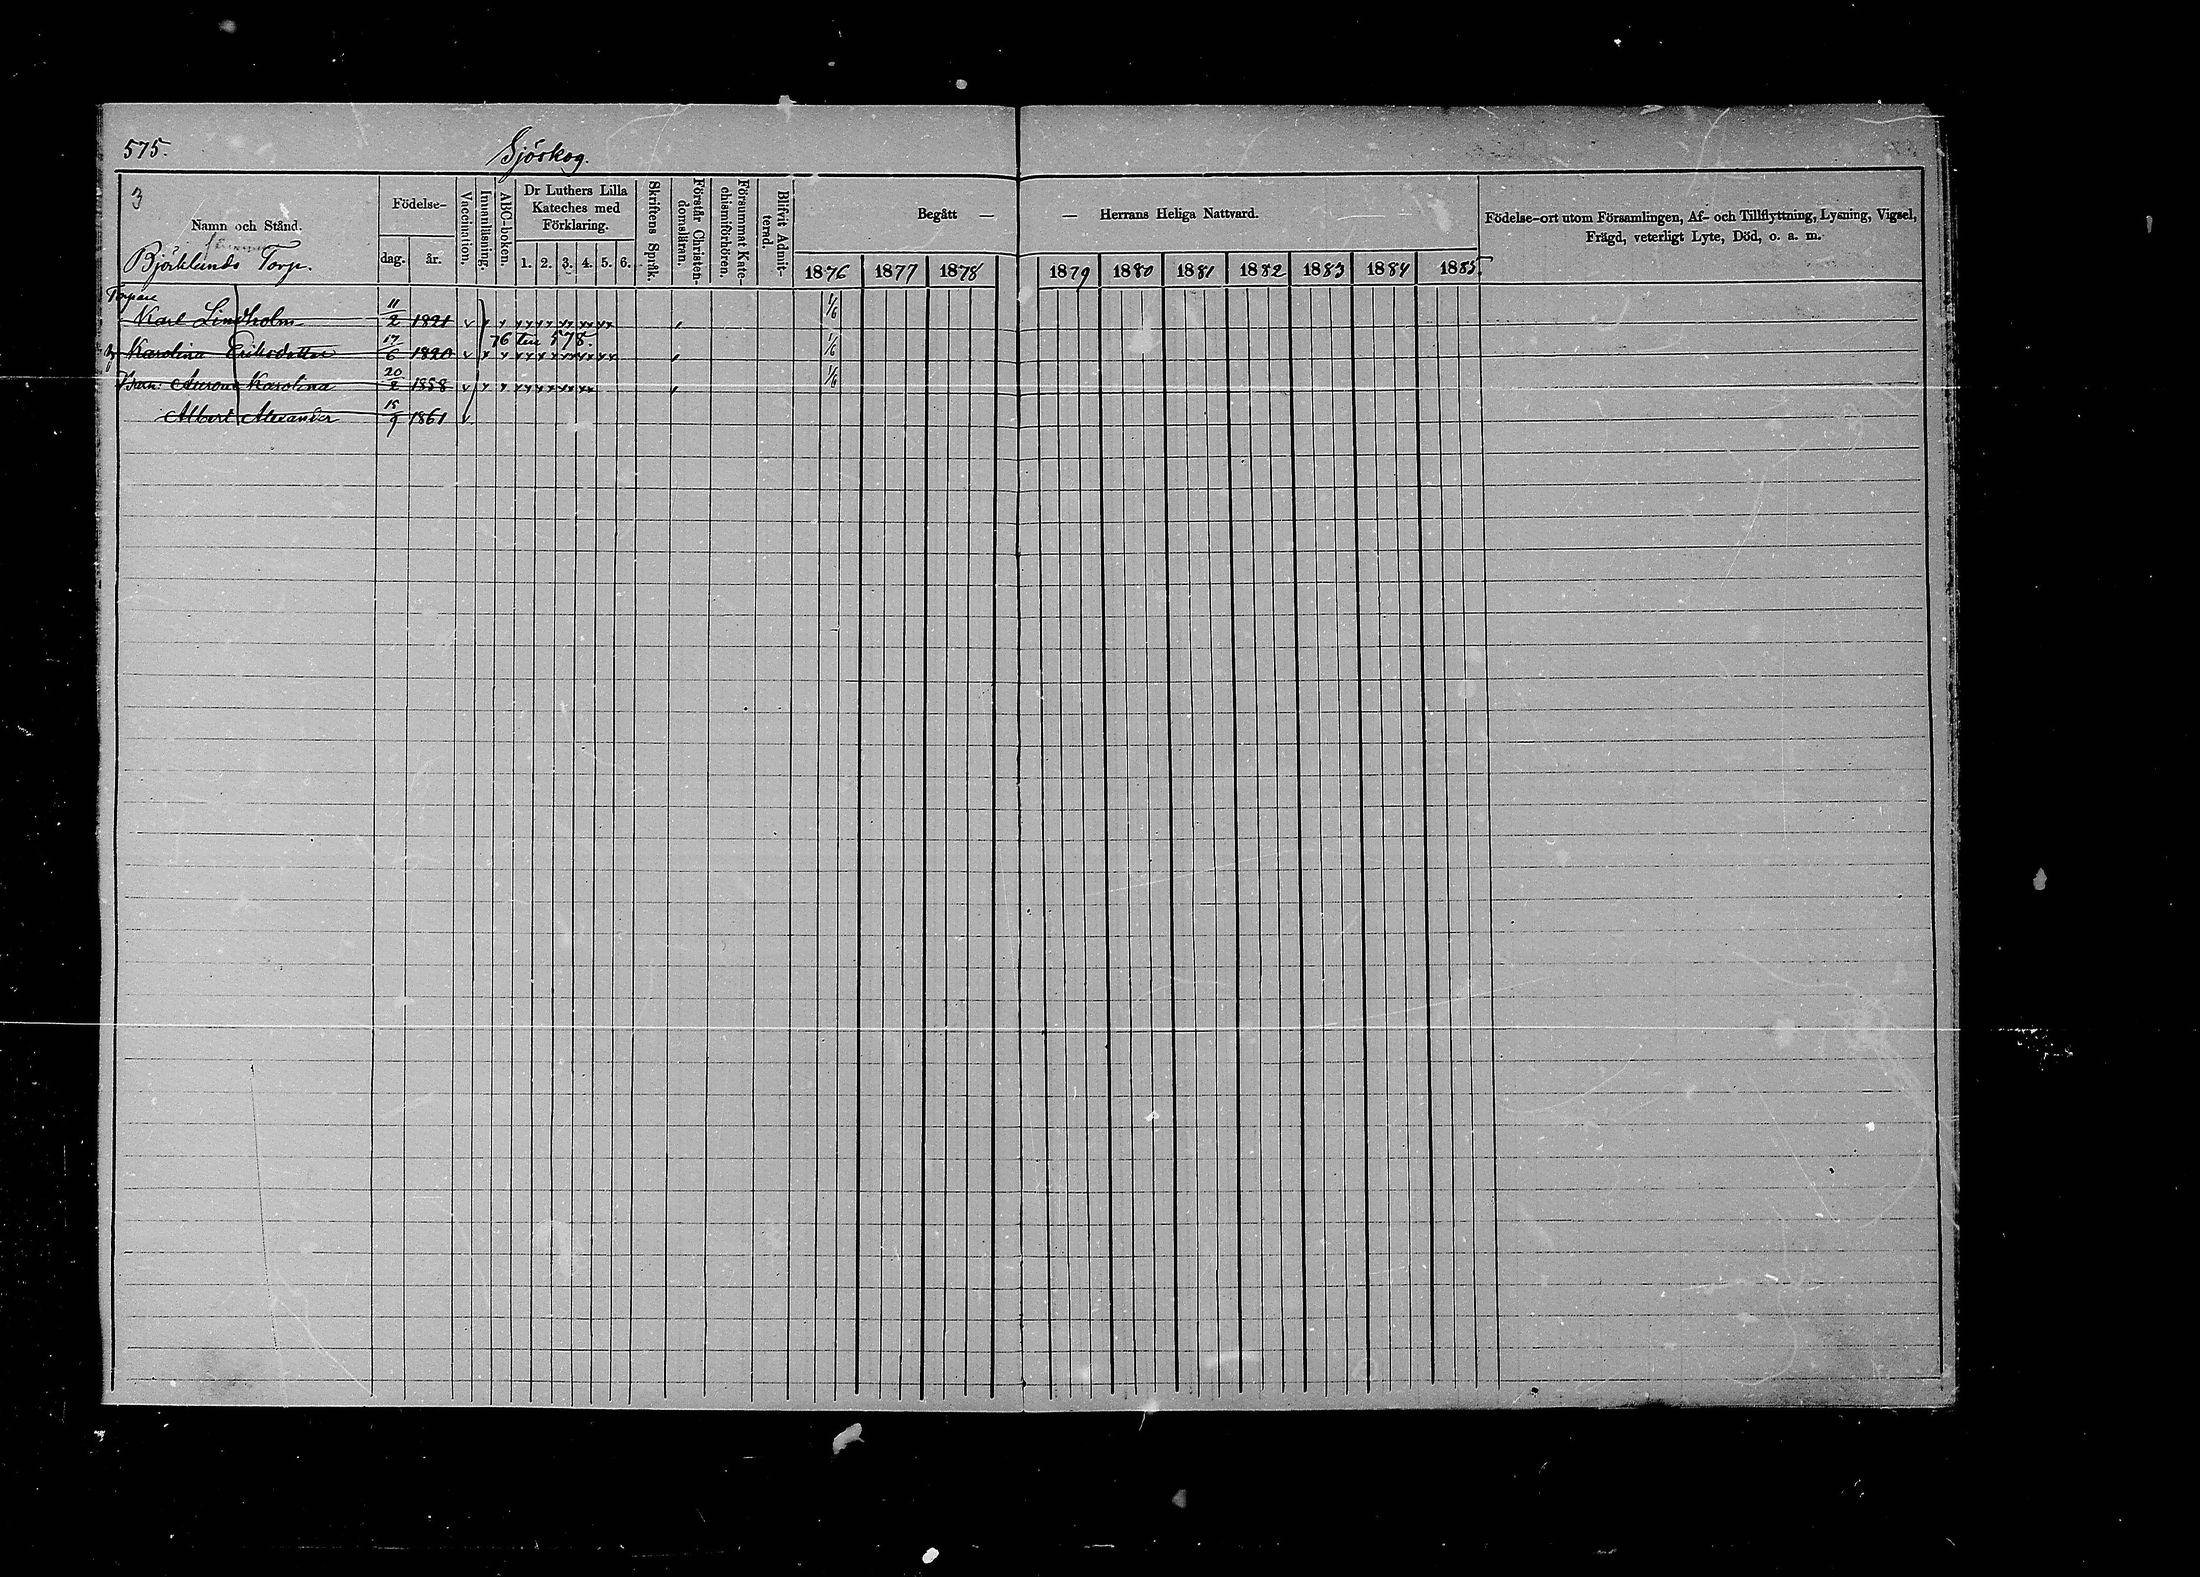 575.
Sjöskog.
3
Namn och Stånd.
Björklunds Torp.
Födelse-
dag.
år.
Vaccination.
Innanläsning.
ABC-boken.
Dr Luthers Lilla
Kateches med
Förklaring.
1. 2. 3. 4. 5. 6.
Skriftens Språk.
Förstår Christen-
domsläran.
Försummat Kate-
chismiförhören.
Blifvit Admit-
terad.
Begått —
1876 1877 1878
— Herrans Heliga Nattvard.
1879 1880 1881 1882 1883 1884 1885
Födelse-ort utom Församlingen, Af- och Tillflyttning, Lysning, Vigsel,
Frägd, veterligt Lyte, Död, o. a. m.
Torpare
Karl Lindholm 11/2 1821 1/6
76 till 578.
Karolina Eriksdotter 17/6 1820 1/6
Barn: Aurora Karolina 20/2 1858 1/6
Albert Alexander 18/9 1861